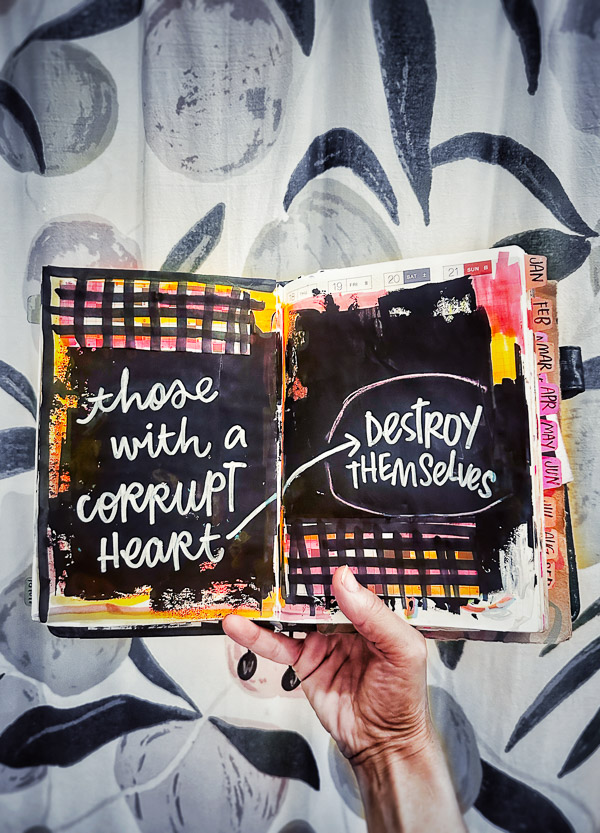 19 FRI
20 SAT
21 SUN
those
with a
corrupt
Heart
DESTROY
THEMSELVES
JAN
FEB
MAR
APR
MAY
JUN
JUL
AUG